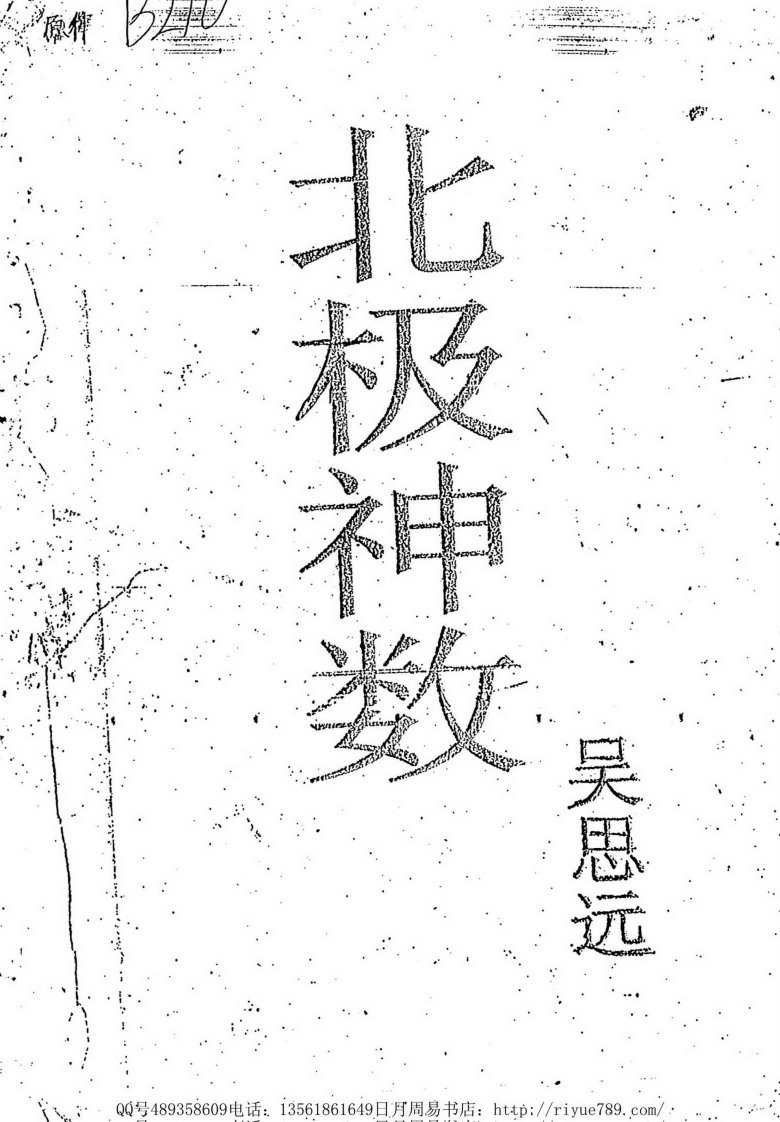 原稚
B210
北极神数
吴思远
QQ号489358609电话：13561861649日月周易书店：http://riyue789.com/